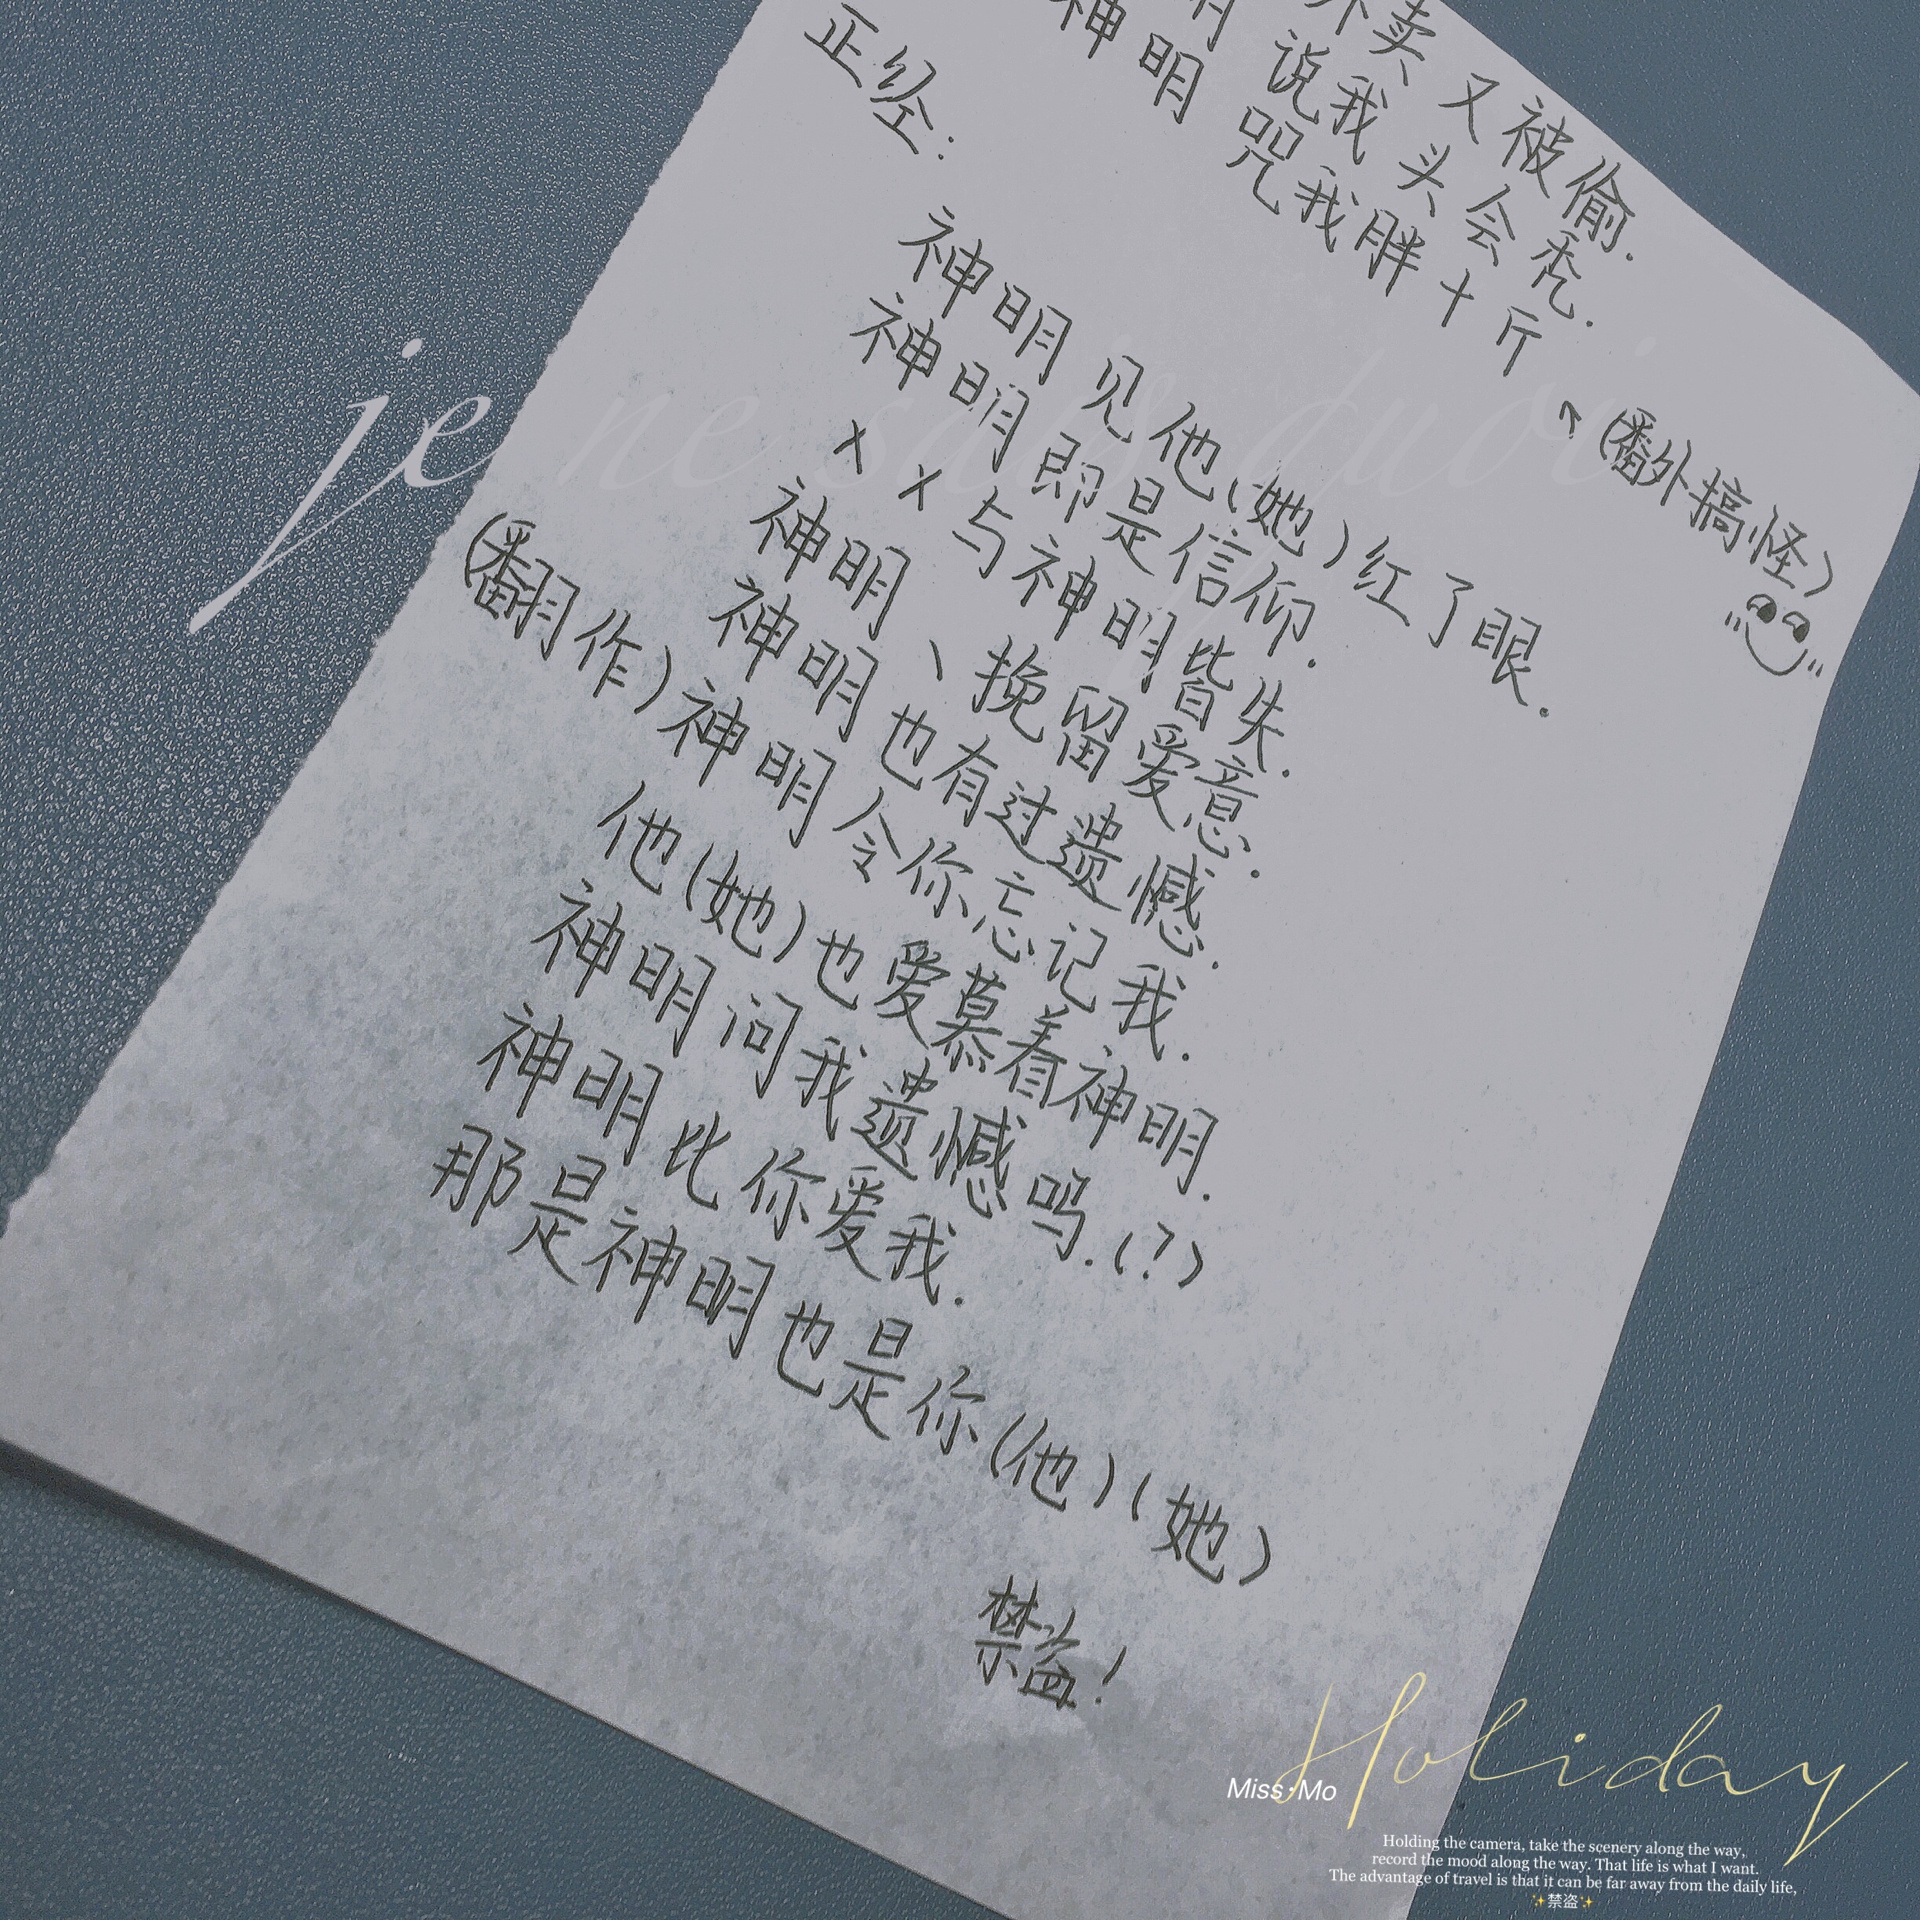 外卖又被偷.
明 说我头会秃.
神明 咒我胖十斤
↖(番外搞怪)
正经:
神明见他(她)红了眼.
神明即是信仰.
x x与神明皆失.
神明、挽留爱意.
神明也有过遗憾.
(翻作)神明令你忘记我.
他(她)也爱慕着神明.
神明问我遗憾吗.(?)
神明比你爱我.
那是神明也是你(他)(她)
禁盗!
je ne sais quoi
Holiday
Miss·Mo
Holding the camera, take the scenery along the way,
record the mood along the way. That life is what I want.
The advantage of travel is that it can be far away from the daily life,
✨禁盗✨